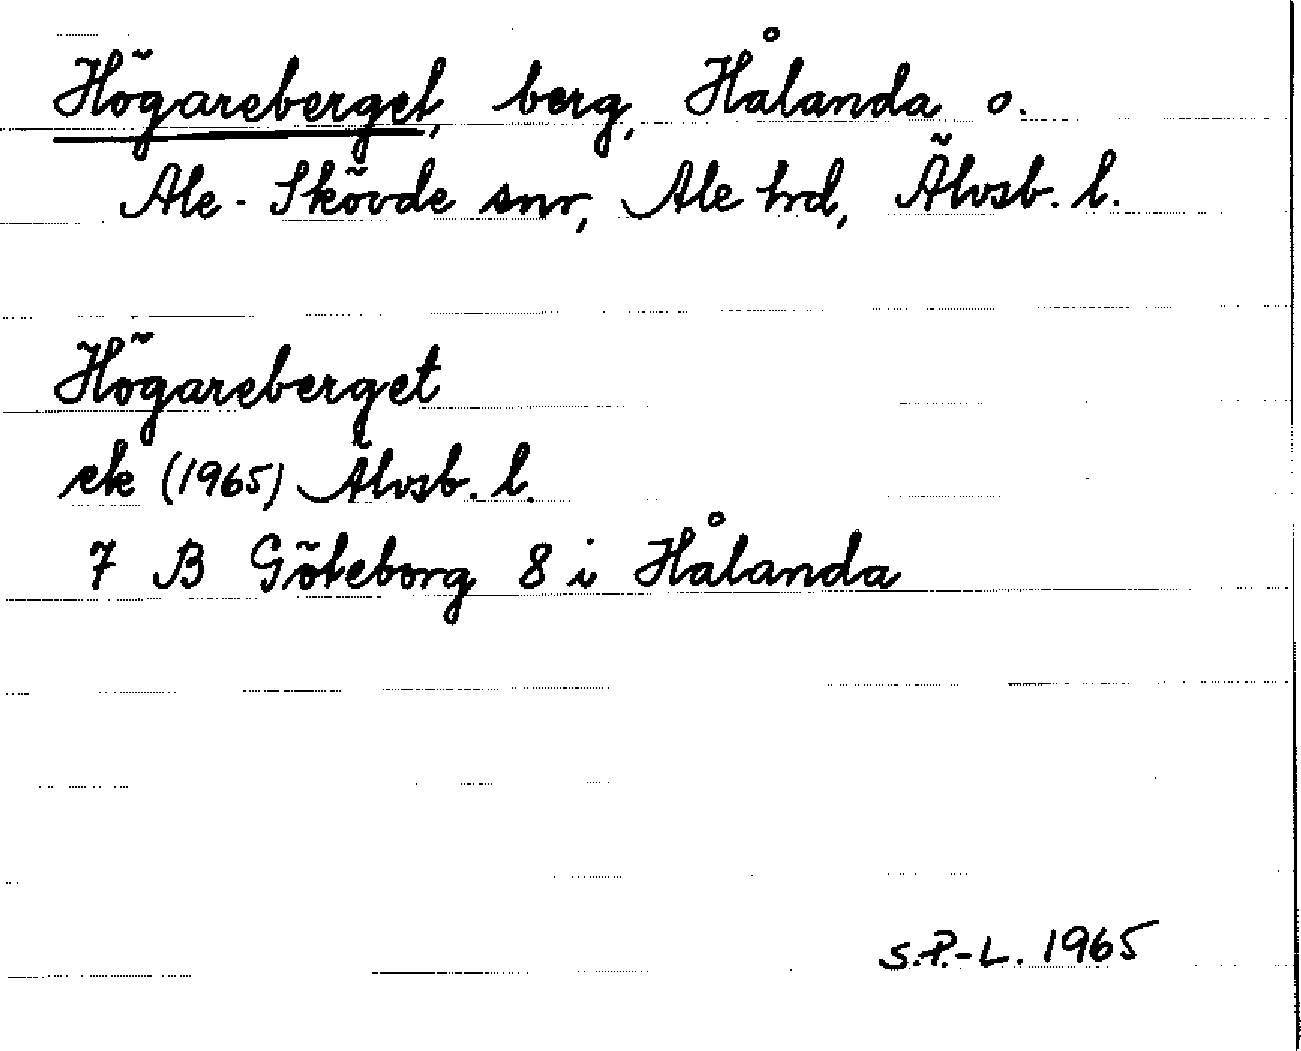 Högareberget, berg, Hålanda o.
Ale-Skövde snr, Ale hrd, Älvsb. l.
Högareberget
ek (1965) Älvsb. l.
7 B Göteborg 8 i Hålanda
S.P.-L. 1965